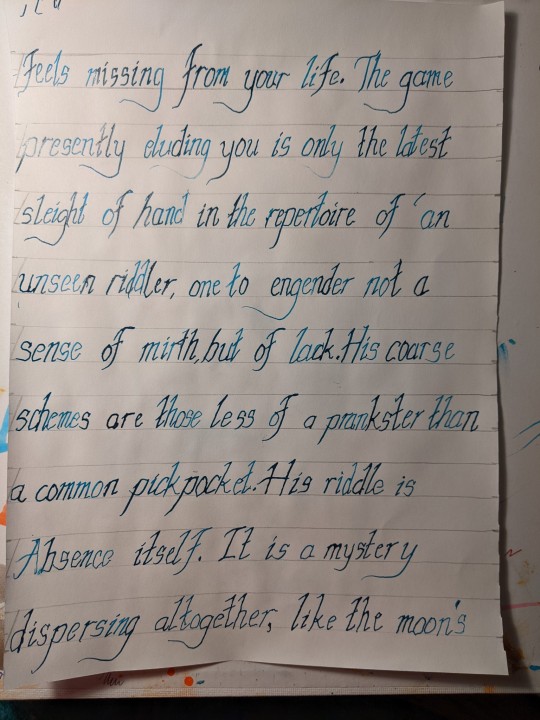 feels missing from your life. The game
presently eluding you is only the latest
sleight of hand in the repertoire of 'an
unseen riddler, one to engender not a
sense of mirth, but of lack. His coarse
schemes are those less of a prankster than
a common pickpocket. His riddle is
Absence itself. It is a mystery
dispersing altogether, like the moon's